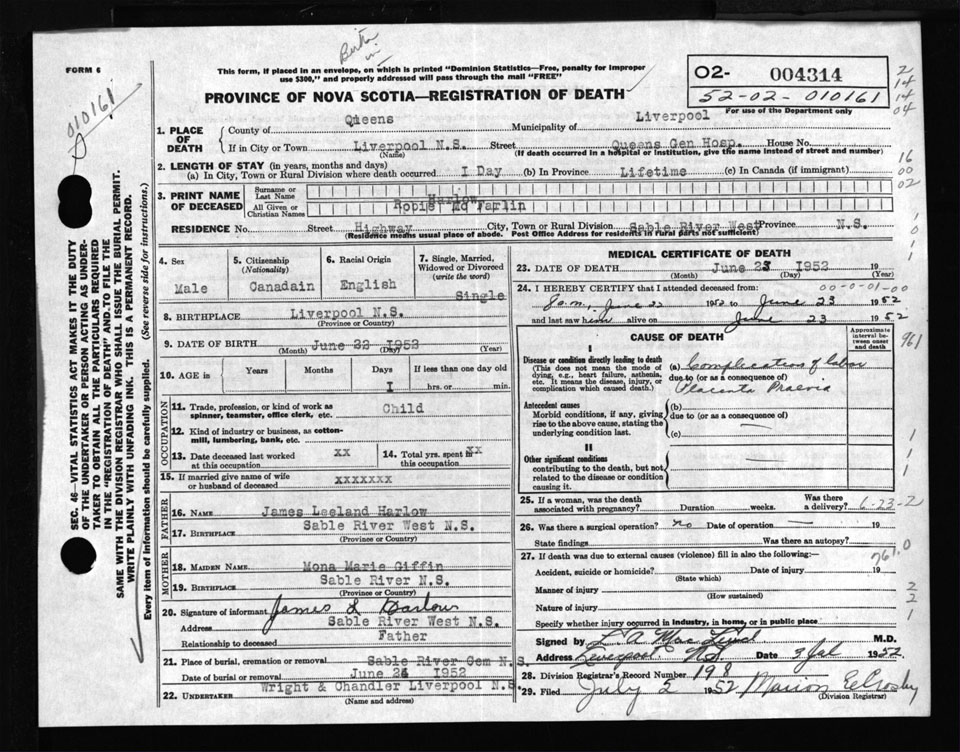 Birth in
FORM 6
This form, if placed in an envelope, on which is printed "Dominion Statistics—Free, penalty for improper
use $300," and properly addressed will pass through the mail "FREE"
O2- 004314
52-02-010161
For use of the Department only
PROVINCE OF NOVA SCOTIA—REGISTRATION OF DEATH
010161
2
14
14
04
16
00
02
1. PLACE OF DEATH
County of Qieens Municipality of Liverpool
If in City or Town Liverpool N.S. Street Queens Gen Hosp. House No.
(Name) (If death occurred in a hospital or institution, give the name instead of street and number)
2. LENGTH OF STAY (in years, months and days)
(a) In City, Town or Rural Division where death occurred I Day (b) In Province Lifetime (c) In Canada (if immigrant)
3. PRINT NAME OF DECEASED
Surname or Last Name Harlow
All Given or Christian Names Robie Mc Farlin
RESIDENCE No. Street Highway City, Town or Rural Division Sable River West Province N.S.
(Residence means usual place of abode. Post Office Address for residents in rural parts not sufficient)
SEC. 46—VITAL STATISTICS ACT MAKES IT THE DUTY
OF THE UNDERTAKER OR PERSON ACTING AS UNDER-
TAKER TO OBTAIN ALL THE PARTICULARS REQUIRED
IN THE "REGISTRATION OF DEATH" AND TO FILE THE
SAME WITH THE DIVISION REGISTRAR WHO SHALL ISSUE THE BURIAL PERMIT.
WRITE PLAINLY WITH UNFADING INK. THIS IS A PERMANENT RECORD.
Every item of information should be carefully supplied. (See reverse side for instructions.)
4. Sex
Male
5. Citizenship
(Nationality)
Canadain
6. Racial Origin
English
7. Single, Married,
Widowed or Divorced
(write the word)
Single
8. BIRTHPLACE Liverpool N.S.
(Province or Country)
9. DATE OF BIRTH June 22 1952
(Month) (Day) (Year)
10. AGE in Years Months Days If less than one day old
I hrs. or min.
OCCUPATION
11. Trade, profession, or kind of work as
spinner, teamster, office clerk, etc. Child
12. Kind of industry or business, as cotton-
mill, lumbering, bank, etc.
13. Date deceased last worked
at this occupation xx
14. Total yrs. spent in
this occupation xx
15. If married give name of wife
or husband of deceased xxxxxxx
FATHER
16. NAME James Leeland Harlow
17. BIRTHPLACE Sable River West N.S.
(Province or Country)
MOTHER
18. MAIDEN NAME Mona Marie Giffin
19. BIRTHPLACE Sable River N.S.
(Province or Country)
20. Signature of informant James L Harlow
Address Sable River West N.S.
Relationship to deceased Father
21. Place of burial, cremation or removal Sable River Cem N.S.
Date of burial or removal June 24 1952
22. UNDERTAKER Wright & Chandler Liverpool N.S.
(Name and address)
MEDICAL CERTIFICATE OF DEATH
23. DATE OF DEATH June 23 1952 19
(Month) (Day) (Year)
24. I HEREBY CERTIFY that I attended deceased from: 00-0-01-00
8 a.m., June 22 1952 to June 23 1952
and last saw him alive on June 23 1952
CAUSE OF DEATH
Approximate
interval be-
tween onset
and death
961
I
Disease or condition directly leading to death
(This does not mean the mode of
dying, e.g., heart failure, asthenia,
etc. It means the disease, injury, or
complication which caused death.)
(a) Complication of labor
due to (or as a consequence of)
Placenta Praevia
Antecedent causes
Morbid conditions, if any, giving
rise to the above cause, stating the
underlying condition last.
(b)
due to (or as a consequence of)
(c)
II
Other significant conditions
contributing to the death, but not
related to the disease or condition
causing it.
25. If a woman, was the death
associated with pregnancy? Duration weeks. Was there
a delivery? 6-23-2
26. Was there surgical operation? no Date of operation — 19
State findings Was there an autopsy?
761.0
27. If death was due to external causes (violence) fill in also the following:
Accident, suicide or homicide? Date of injury 19
(State which)
Manner of injury
(How sustained)
Nature of injury
Specify whether injury occurred in Industry, in home, or in public place
Signed by M.D.
Address Liverpool N.S. Date 3 Jul 1952
28. Division Registrar's Record Number 198
29. Filed July 5 1952 Marion E Crosby
(Division Registrar)